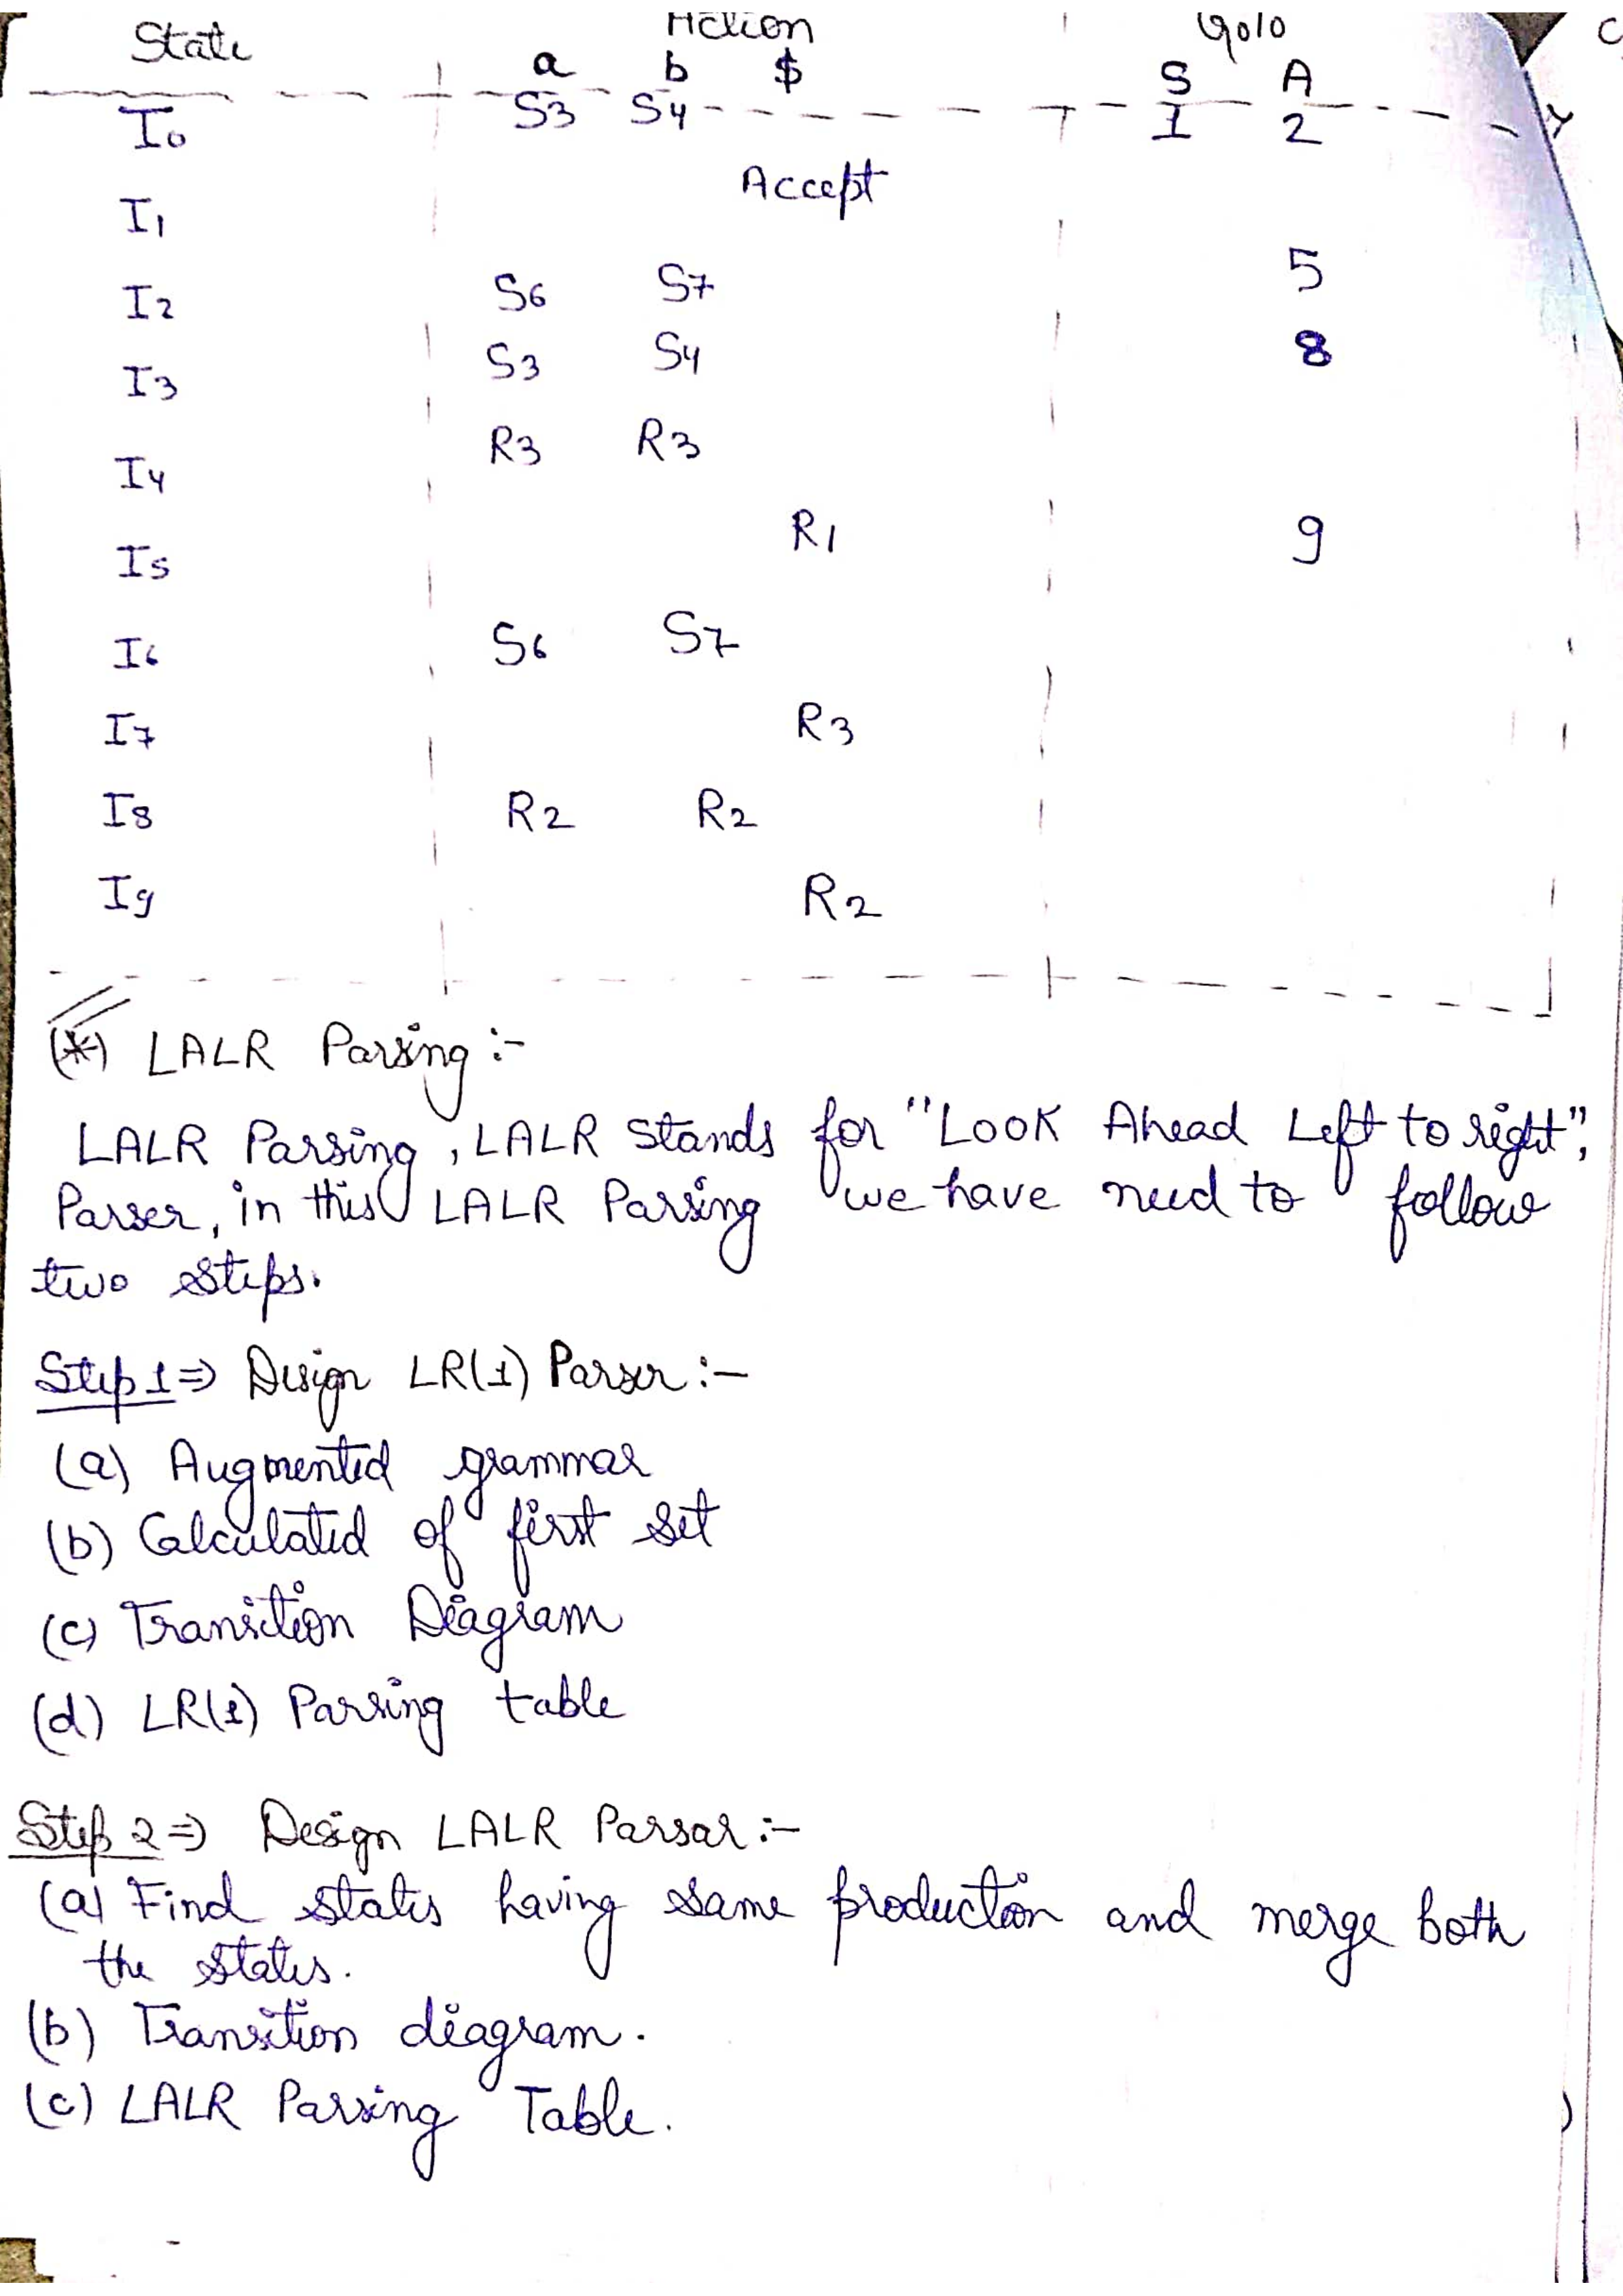 State Action Goto
a b $ S A
I0 S3 S4 1 2
I1 Accept
I2 S6 S7 5
I3 S3 S4 8
I4 R3 R3
I5 R1 9
I6 S6 S7
I7 R3
I8 R2 R2
I9 R2
(*) LALR Parsing :-
LALR Parsing, LALR stands for "Look Ahead Left to right",
Parser, in this LALR Parsing we have need to follow
two steps.
Step 1 => Design LR(1) Parser :-
(a) Augmented grammar
(b) Calculated of first set
(c) Transition Diagram
(d) LR(1) Parsing table
Step 2 => Design LALR Parsar :-
(a) Find states having same production and merge both
the states.
(b) Transition diagram.
(c) LALR Parsing Table.